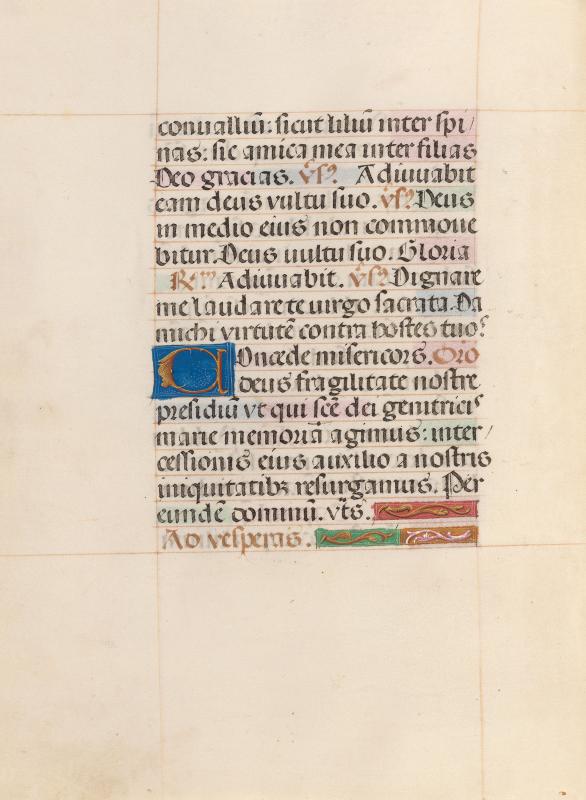 conuallium̄: sicut liliū inter spi/
nas: sic amica mea inter filias
Deo gracias. v̄s̄. Adiuuabit
eam deus vultu suo. v̄s̄. Deus
in medio eius non commoue
bitur. Deus uultu suo. Gloria
Adiuuabit. v̄s̄. Dignare
me laudare te uirgo sacrata. Da
michi virtutē contra hostes tuos
Concede misericors. Oro
deus fragilitate nostre
presidiū vt qui scē dei genitricis
marie memoriā agimus: inter/
cessionis eius auxilio a nostris
iniquitatibꝫ resurgamus. Per
eundē dominū. vts̄.
Ad vesperas.